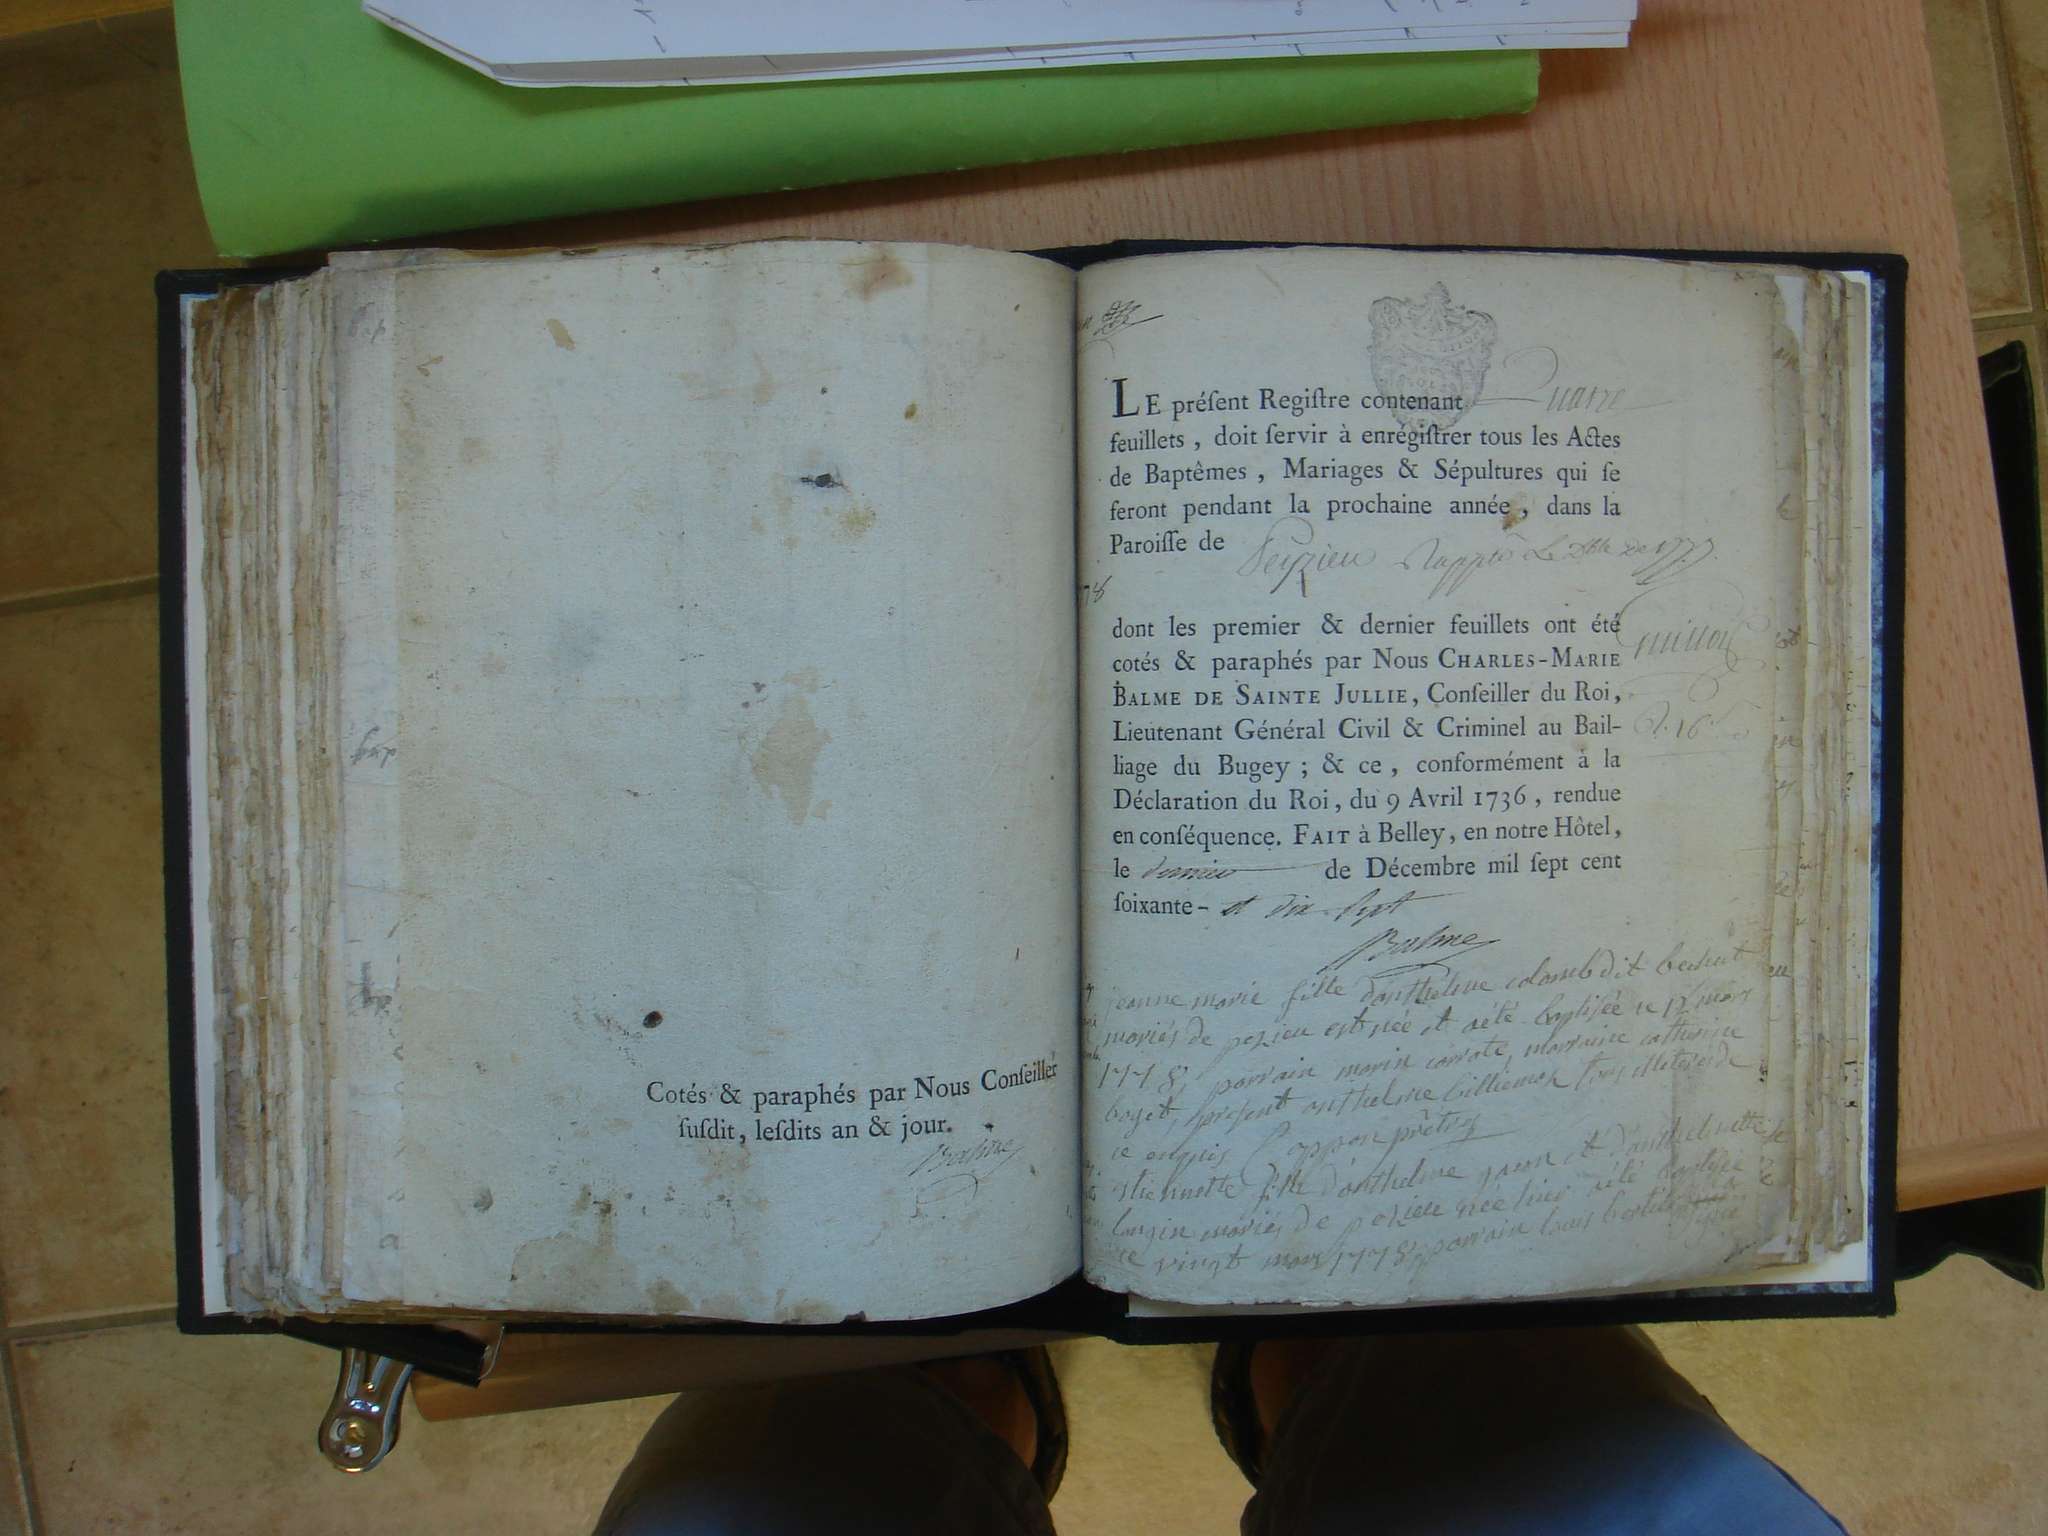 Cotés & paraphés par Nous Conſeiller
ſuſdit, leſdits an & jour.
Balme
LE préſent Regiſtre contenant Quatre
feuillets, doit ſervir à enrégiſtrer tous les Actes
de Baptêmes, Mariages & Sépultures qui ſe
feront pendant la prochaine année, dans la
Paroiſſe de Peyzieu
dont les premier & dernier feuillets ont été
cotés & paraphés par Nous CHARLES-MARIE
BALME DE SAINTE JULLIE, Conſeiller du Roi,
Lieutenant Général Civil & Criminel au Bail-
liage du Bugey; & ce, conformément à la
Déclaration du Roi, du 9 Avril 1736, rendue
en conſéquence. FAIT à Belley, en notre Hôtel,
le dernier de Décembre mil ſept cent
ſoixante- et dix Sept
Balme
jeanne marie fille d'anthelme colomb dit
mariés de pezieu est née et a été baptisée le 12 mars
1778, parrain marin carrote, marraine catherine
boget, present anthelme billiemaz
ce enquis Cappon prêtre
etiennette fille d'anthelme et d'anthelmette
mariés de pezieu née hier a été baptisée
ce vingt mars 1778, parrain louis